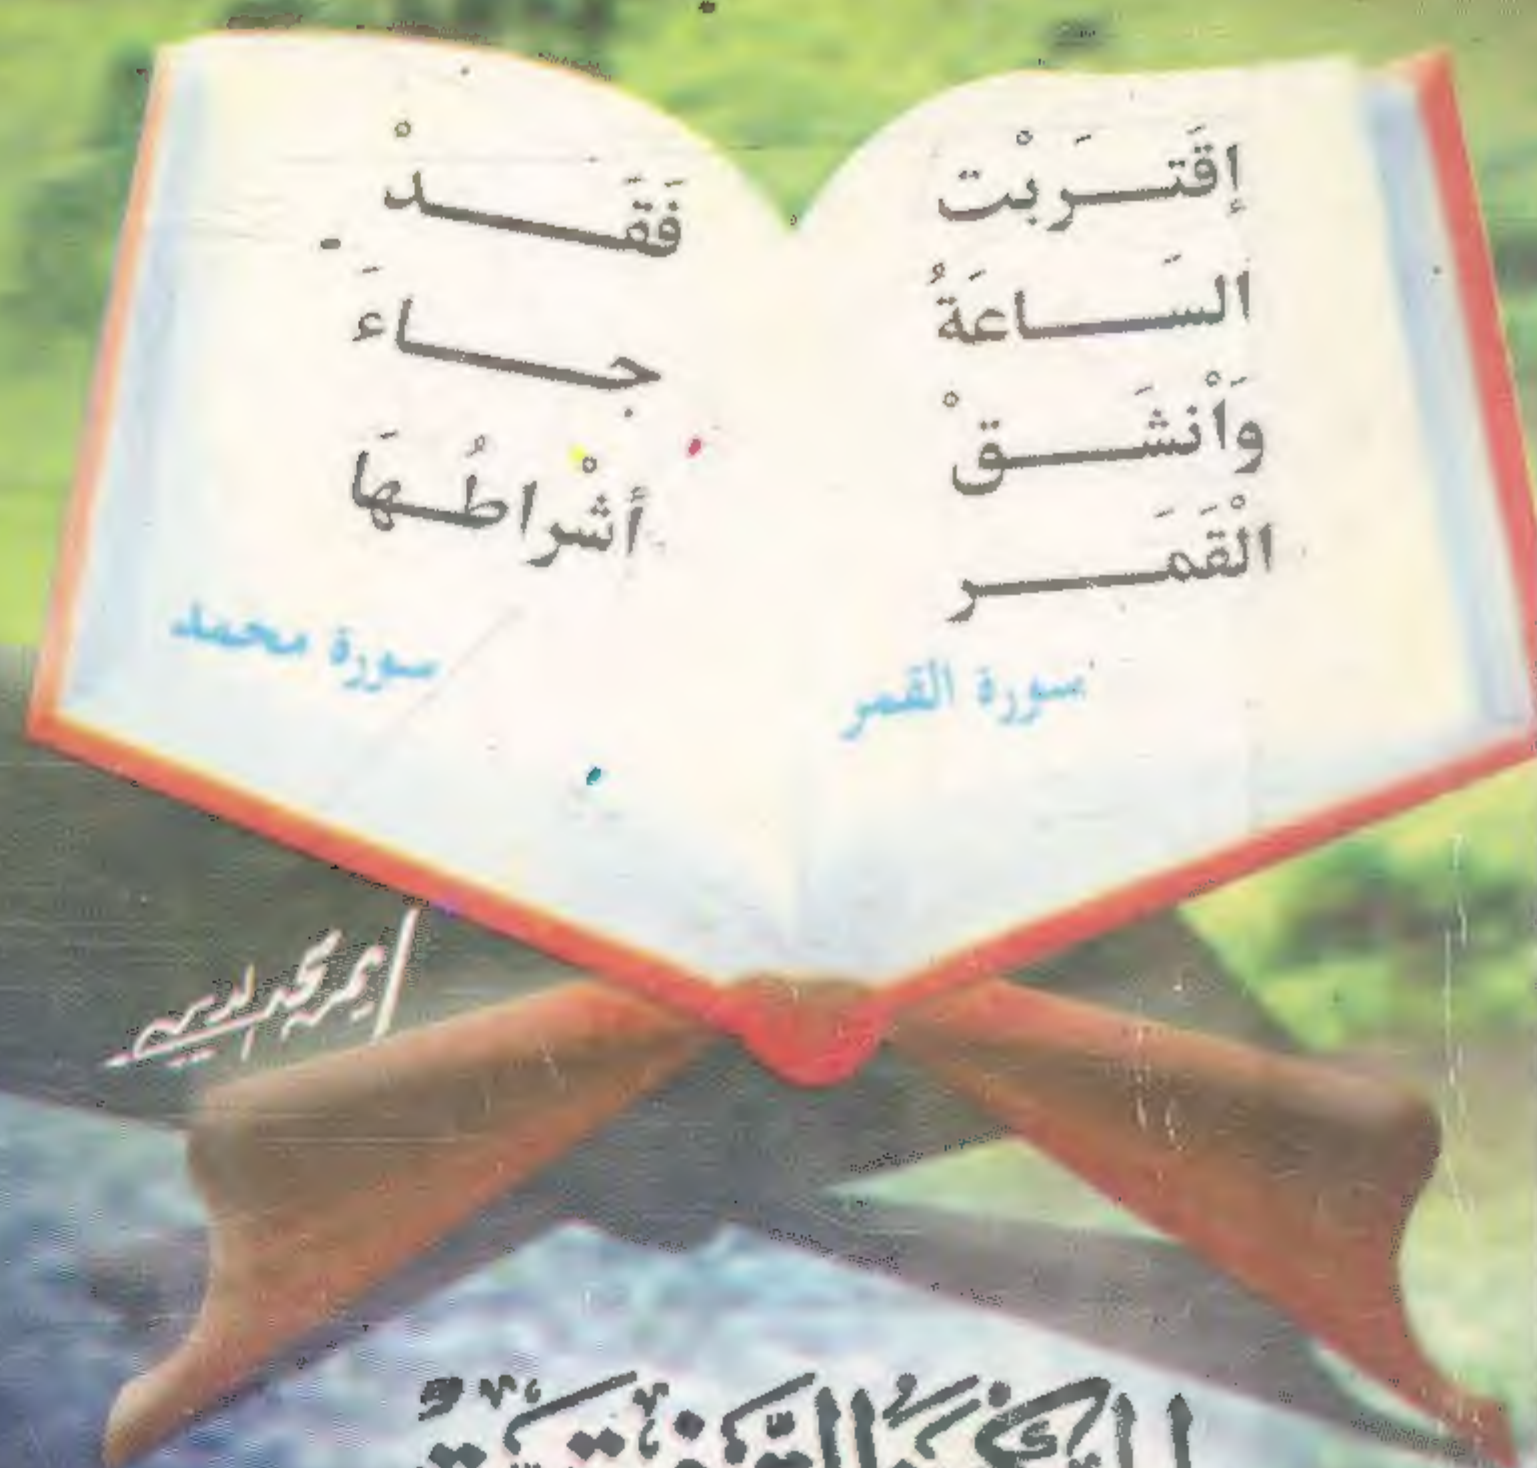 إقَتَرَبْت
السَاعَةُ
وَاْنشَقْ
الْقَمَر
سورة القمر
فَقَدْ
جاءَ
أَشْراطُهَا
سورة محمد